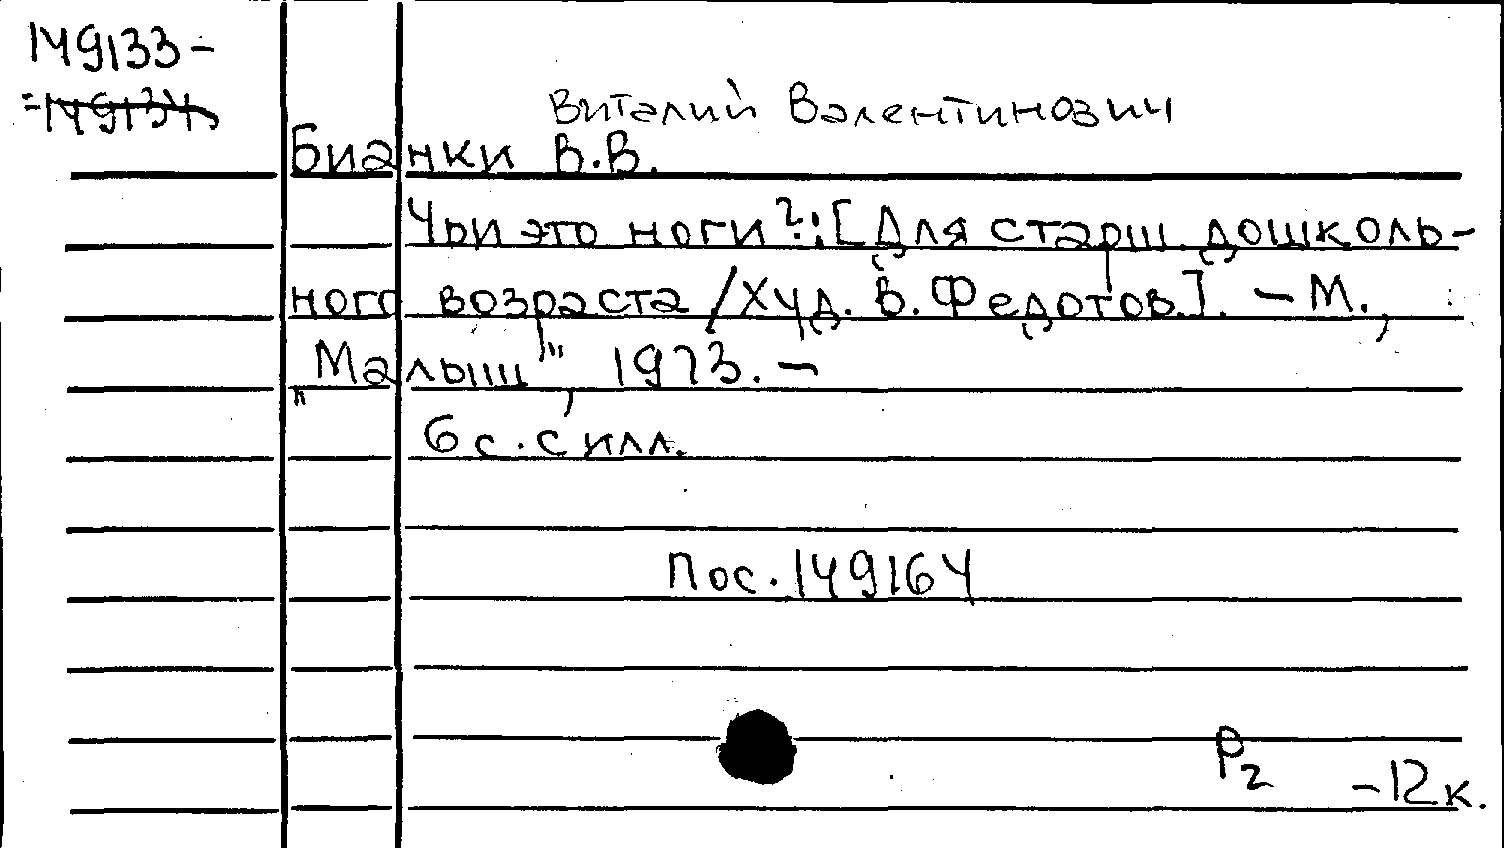 149133-
=149134
Виталий Валентинович
Бианки В.В.
Чьи это ноги?: [Для старш. дошколь-
ного возраста /Худ. В. Федотов.]. – М.,
„Малыш", 1973. –
6 с. с илл.
Пос. 149164
Р2
-12 к.